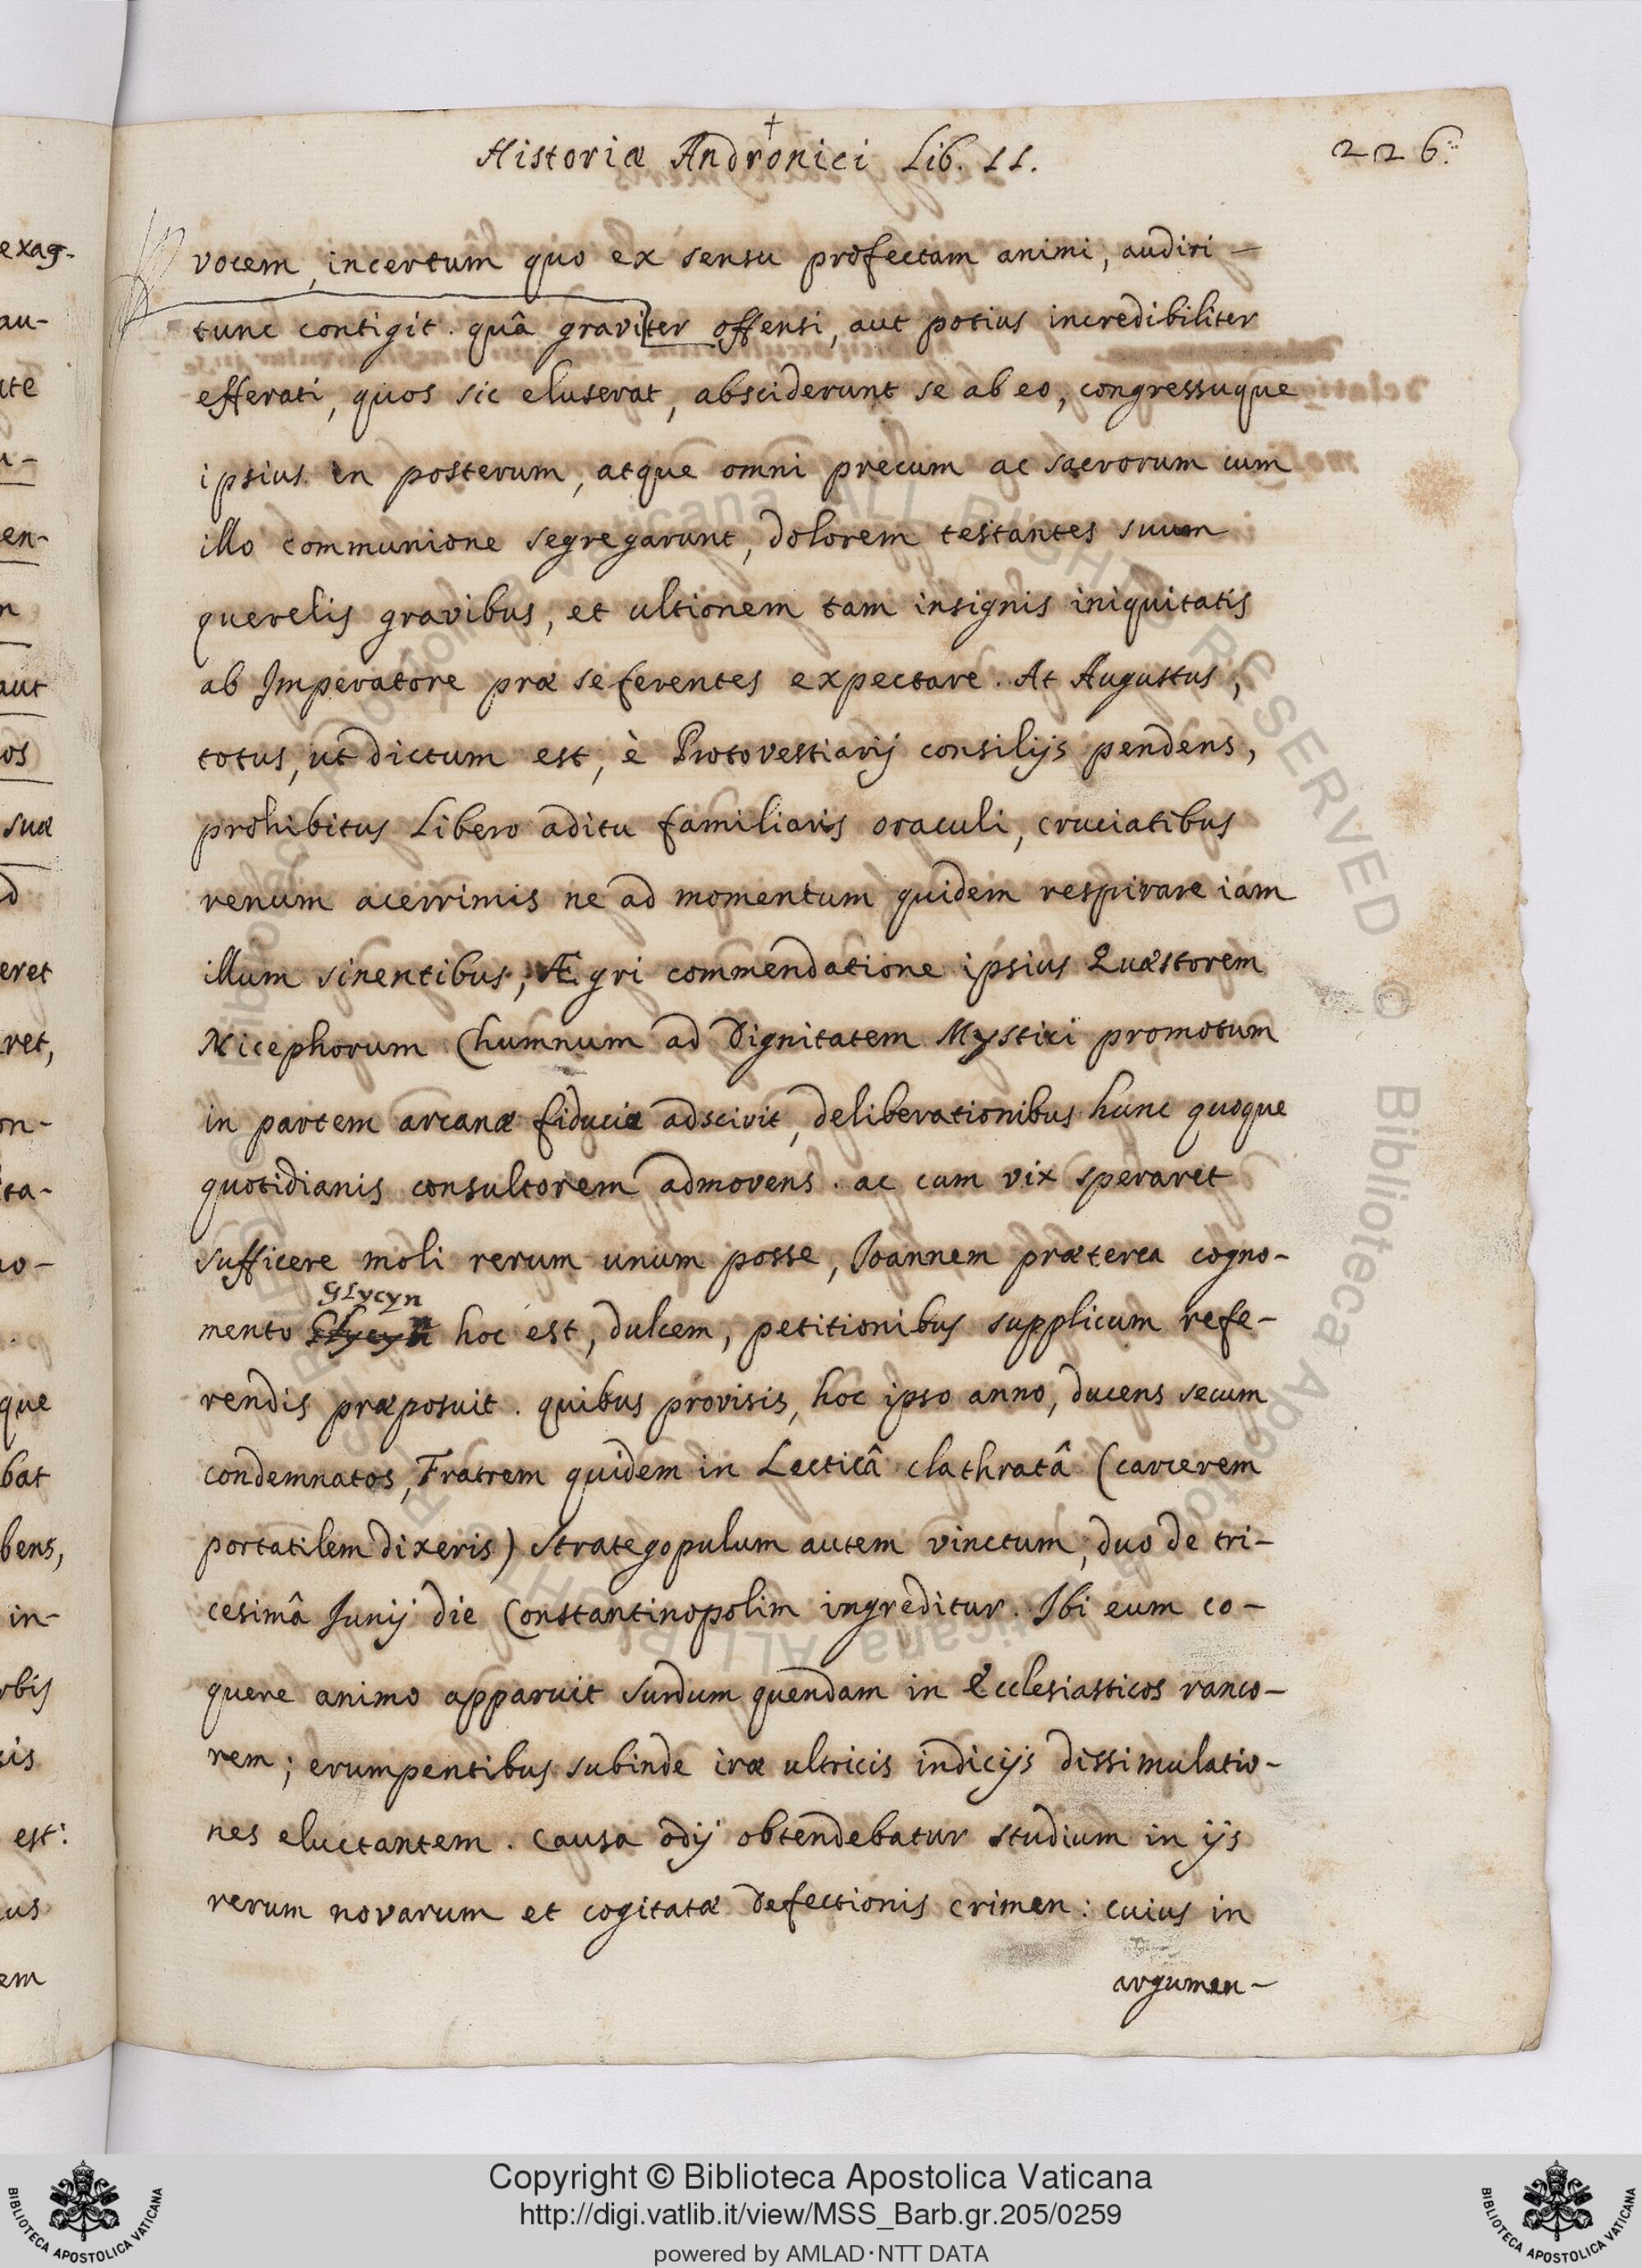 Historiæ Andronici Lib. II.
226.
vocem, incertum quo ex sensu profectam animi, audiri –
tunc contigit. quâ graviter offensi, aut potius incredibiliter
efferati, quos sic eluserat, absciderunt se ab eo, congressuque
ipsius in posterum, atque omni precum ac sacrorum cum
illo communione segregarunt, dolorem testantes suum
querelis gravibus, et ultionem tam insignis iniquitatis
ab Imperatore præ se ferentes expectare. At Augustus,
totus, ut dictum est, è Protovestiarij consilijs pendens,
prohibitus libero aditu familiaris oraculi, cruciatibus
renum acerrimis ne ad momentum quidem respirare iam
illum sinentibus, Ægri commendatione ipsius Quæstorem
Nicephorum Chumnum ad Dignitatem Mystici promotum
in partem arcanæ fiduciæ adscivit, deliberationibus hunc quoque
quotidianis consultorem admovens. ac cum vix speraret
sufficere moli rerum unum posse, Ioannem præterea cogno-
Glycyn
mento hoc est, dulcem, petitionibus supplicum refe-
rendis præposuit. quibus provisis, hoc ipso anno, ducens secum
condemnatos, Fratrem quidem in Lecticâ clathratâ (carcerem
portatilem dixeris) Strategopulum autem vinctum, duo de tri-
cesimâ Junij die Constantinopolim ingreditur. Ibi eum co-
quere animo apparuit surdum quendam in Ecclesiasticos ranco-
rem; erumpentibus subinde iræ ultricis indicijs dissimulatio-
nes eluctantem. Causa odij obtendebatur studium in ijs
rerum novarum et cogitatæ defectionis crimen: cuius in
argumen-
exag-
au-
en-
aut
os
suæ
eret
ret,
on-
ta-
que
bat
bens,
in-
sis
est:
us
em
Copyright © Biblioteca Apostolica Vaticana
http://digi.vatlib.it/view/MSS_Barb.gr.205/0259
powered by AMLAD·NTT DATA
BIBLIOTECA APOSTOLICA VATICANA
BIBLIOTECA APOSTOLICA VATICANA